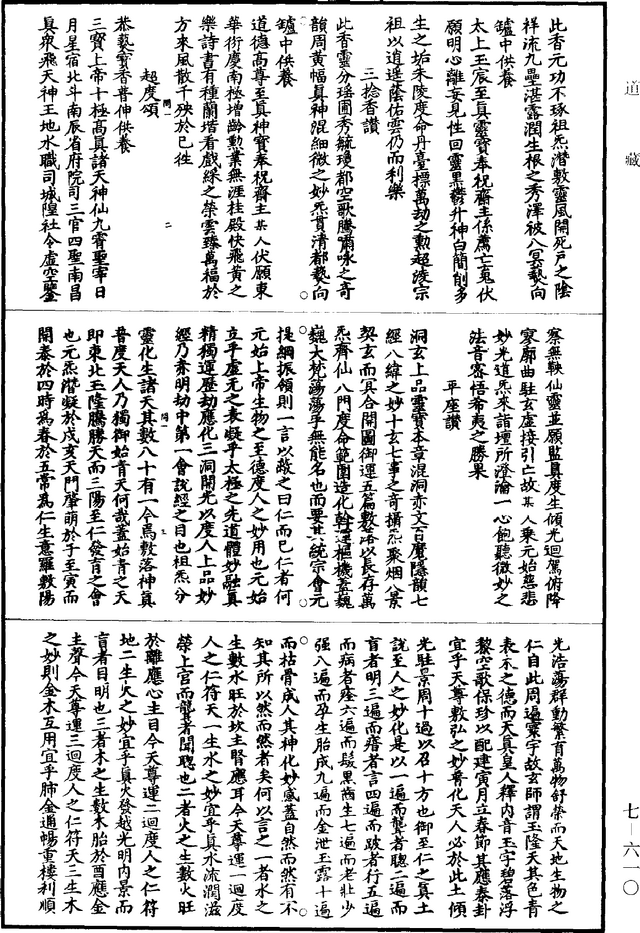 此香元功不琢祖炁潛敷靈風開死戶之陰
祥流九壘湛露潤生根之秀澤被八冥爇向
罏中供養
太上玉宸至真靈寶奉祝齋主係薦亡䰟伏
願明心離妄見性回靈黑簿升神白簡削多
生之垢朱陵度命丹臺標萬劫之勳超淩宗
祖以逍遥蔭佑雲仍而利樂
三捻香讃
此香靈分瑶圃秀毓瓊都空歌騰彌咏之奇
韻周黄幅真神混細微之妙炁貫清都爇向
罏中供養
道德高尊至真神寶奉祝齋主某人伏願東
華衍慶南極增齡勳業無涯桂殿快飛黄之
樂詩書有種蘭堦看戲綵之榮雲臻萬福於
方來風散千殃於已徃
超度頌
恭爇寳香普伸供養
三寳上帝十極高真諸天神仙九霄聖宰日
月星宿北斗南辰省府院司三官四聖南昌
真衆飛天神王地水職司城隍社令虚空鑒
察無鞅仙靈並願監真度生傾光迴駕俯降
寥廓曲駐玄虚接引亡故某人乘元始慈悲
妙光道炁來詣壇所澄淪一心飽聽微妙之
法音密悟希夷之勝果
平座讃
洞玄上品靈寳本章混洞赤文百魔隱韻七
經八緯之妙十玄七事之奇攝炁聚烟八景
契玄而冥合開圖御運五篇敷落以長存萬
炁齊仙八門度命範圍造化斡運樞機蓋巍
巍大梵蕩蕩乎無能名也而要其統宗會元
提綱振領則一言以蔽之曰仁而已仁者何
元始上帝生物之至德度人之妙用也元始
立乎虚无之表凝乎太極之先道體妙融真
精獨運歷劫應化三洞開先以度人上品妙
經乃赤明劫中第一會說經之目也祖炁分
靈化生諸天其數八十有一今焉敷落神真
普度天人乃獨御始青天何哉蓋始青之天
即東北玉隆騰勝天而三陽至仁發育之會
也元炁潛凝於戌亥天門肇萌於子至寅而
開泰於四時爲春於五常爲仁生意羅敷陽
光浩蕩群動繁育萬物舒榮而天地生物之
仁自此周遍寰宇故玄師謂玉隆天其色青
表木之德而天真皇人釋内音玉字碧落浮
黎空歌保珍以配建寅月立春節其應泰卦
宜乎天尊敷弘之妙普化天人必於此土傾
光駐景周十過以召十方也御至仁之真土
說至人之妙化是以一遍而聾者聰二遍而
盲者明三遍而瘖者言四遍而跛者行五遍
而病者痊六遍而髮黑齒生七遍而老壯少
强八遍而孕生胎成九遍而金泄玉露十遍
而枯骨成人其神化妙感蓋自然而然有不
知其所以然而然者矣何以言之一者水之
生數水旺於坎主腎應耳今天尊運一迴度
人之仁符天一生水之妙宜乎真水流潤滋
榮上宫而聾者聞聰也二者火之生數火旺
於離應心主目今天尊運二迴度人之仁符
地二生火之妙宜乎真火發越光明内景而
盲者目明也三者木之生數木胎於酉應金
主聲今天尊運三迴度人之仁符天三生木
之妙則金木互用宜乎肺金通暢重樓利順
道藏
七—六一〇